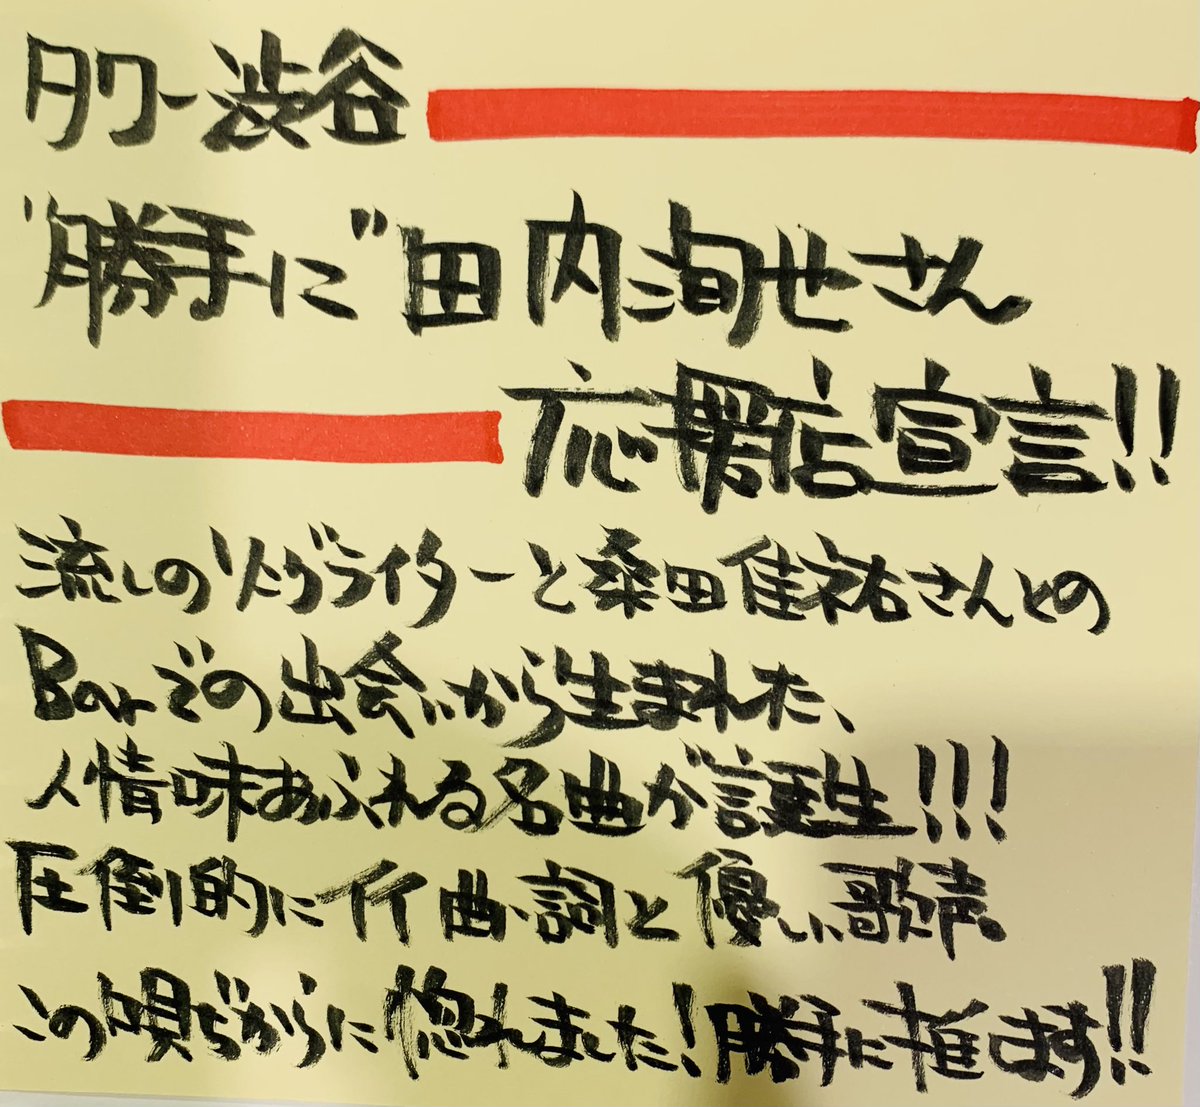 タワー渋谷
"勝手に"田内洵也さん
応援店宣言!!
流しのソングライターと桑田佳祐さんとの
Barでの出会いから生まれた、
人情味あふれる名曲が誕生!!!
圧倒的に作曲・詞と優しい歌声。
この唄ぢからに惚れました!勝手に推します!!